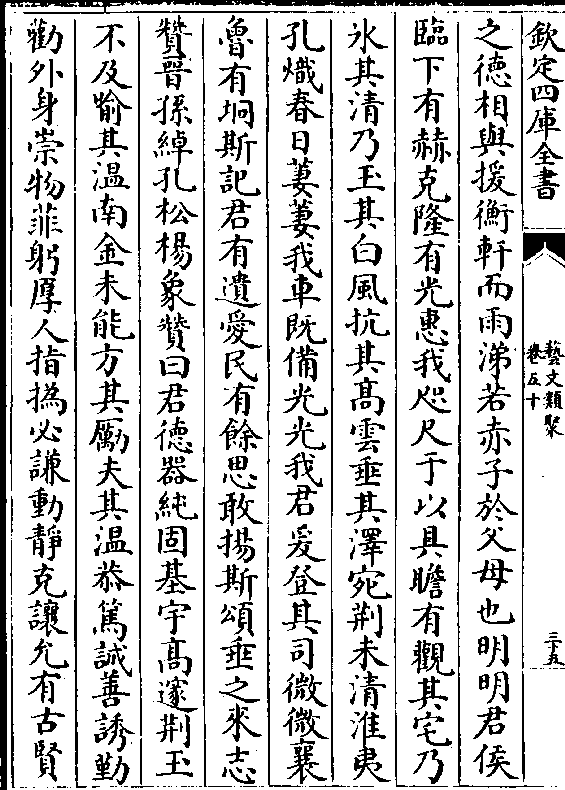 欽定四庫全書
藝文類聚
卷五十
三十五
之德相與援衡軒而雨涕若赤子於父母也明明君侯
臨下有赫克隆有光惠我咫尺于以具瞻有觀其宅乃
氷其清乃玉其白風抗其髙雲垂其澤宛荆未清淮夷
孔熾春日萋萋我車既備光光我君爰登其司微微襄
魯有坰斯記君有遺愛民有餘思敢揚斯頌垂之來志
贊晉孫綽孔松楊象贊曰君德器純固基宇髙邃荆玉
不及喻其温南金未能方其勵夫其温恭篤誠善誘勤
勸外身崇物菲躬厚人指撝必謙動靜克讓允有古賢